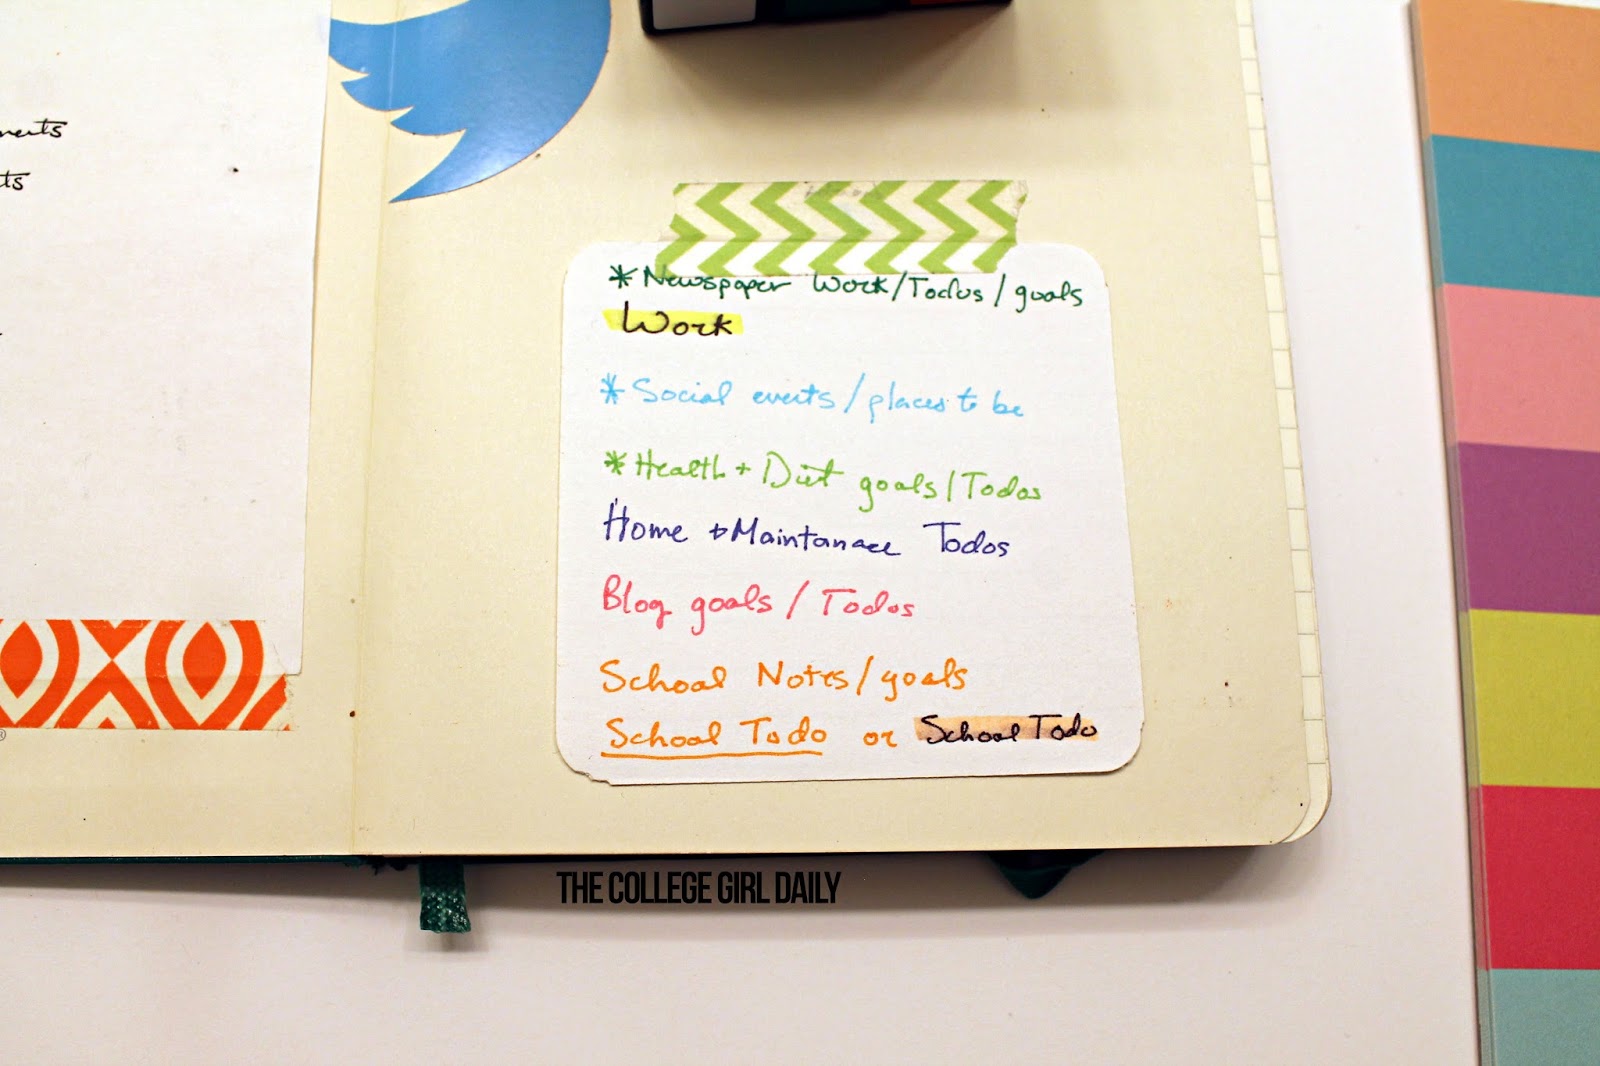 *Newspaper Work/Todos/goals
Work
*Social events/places to be
*Health + Diet goals/Todos
Home + Maintanace Todos
Blog goals/Todos
School Notes/goals
School Todo or School Todo
THE COLLEGE GIRL DAILY